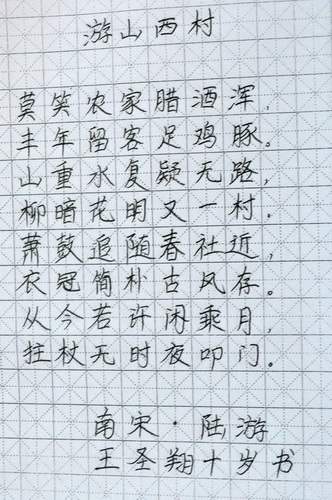 游山西村
莫笑农家腊酒浑,
丰年留客足鸡豚。
山重水复疑无路,
柳暗花明又一村.
萧鼓追随春社近,
衣冠简朴古风存。
从今若许闲乘月,
拄杖无时夜叩门。
南宋·陆游
王圣翔十岁书